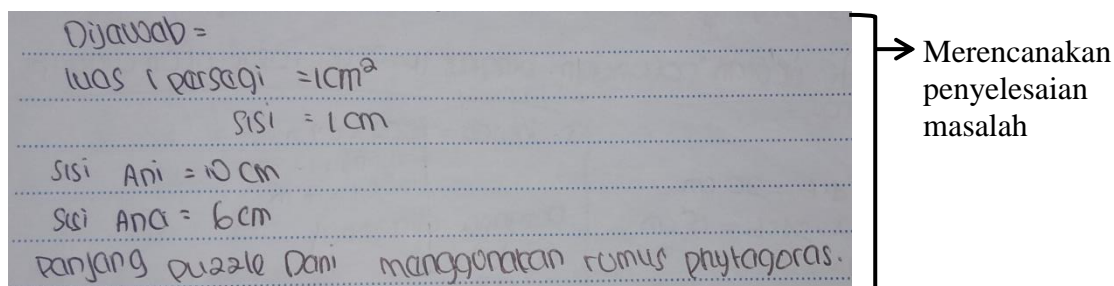 Dijawab =
luas 1 persegi = 1 cm²
sisi = 1 cm
sisi Ani = 10 cm
sisi Ana = 6 cm
Panjang puzzle Dani menggunakan rumus phytagoras.
Merencanakan
penyelesaian
masalah